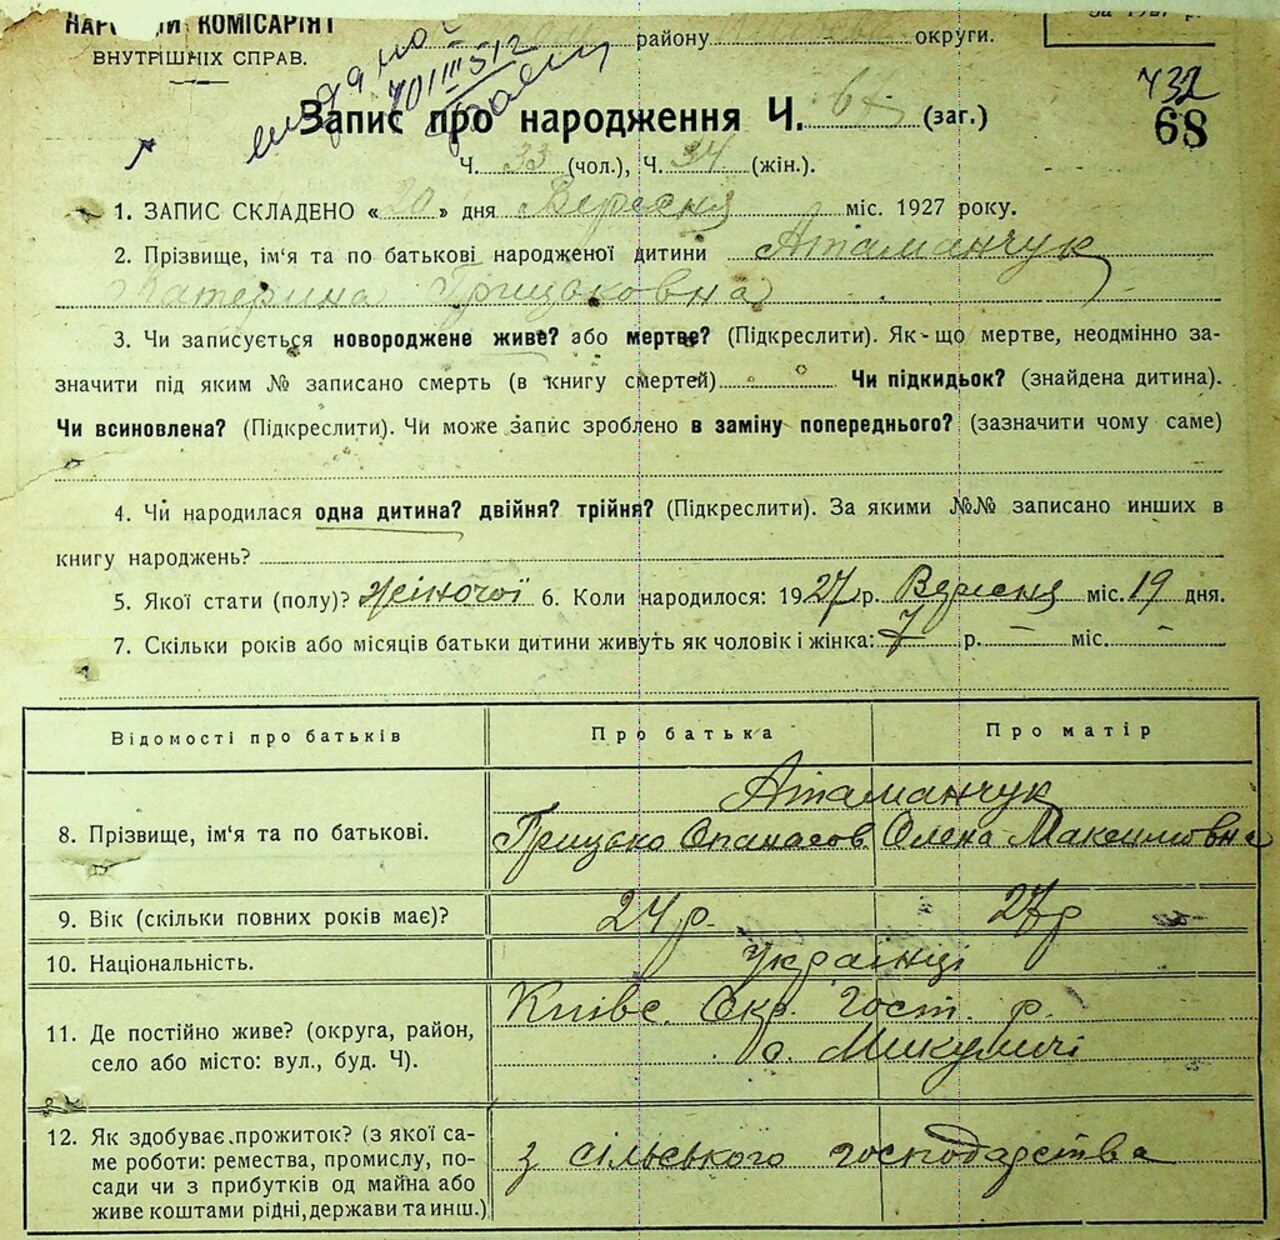 НАРОДНИЙ КОМІСАРІЯТ
ВНУТРІШНІХ СПРАВ.
району округи.
за 1927 р.
432
68
Запис про народження Ч. 67 (заг.)
Ч. 33 (чол.), Ч. 34 (жін.).
1. ЗАПИС СКЛАДЕНО « 20 » дня Вересня міс. 1927 року.
2. Прізвище, ім'я та по батькові народженої дитини Атаманчук
Катерина Грицьковна
3. Чи записується новороджене живе? або мертве? (Підкреслити). Як-що мертве, неодмінно за-
значити під яким № записано смерть (в книгу смертей) Чи підкидьок? (знайдена дитина).
Чи всиновлена? (Підкреслити). Чи може запис зроблено в заміну попереднього? (зазначити чому саме)
4. Чи народилася одна дитина? двійня? трійня? (Підкреслити). За якими №№ записано инших в
книгу народжень?
5. Якої стати (полу)? жіночої 6. Коли народилося: 1927 р. Вересня міс. 19 дня.
7. Скільки років або місяців батьки дитини живуть як чоловік і жінка: 7 р. — міс. —
Відомості про батьків Про батька Про матір
Атаманчук
8. Прізвище, ім'я та по батькові. Грицько Опанасов Олена Максимовна
9. Вік (скільки повних років має)? 24 р. 27 р
10. Національність. Українці
11. Де постійно живе? (округа, район, Київс. Окр. Гост. р.
село або місто: вул., буд. Ч). с. Микуличі
12. Як здобуває прожиток? (з якої са-
ме роботи: ремества, промислу, по- з сільського господарства
сади чи з прибутків од майна або
живе коштами рідні, держави та инш.)